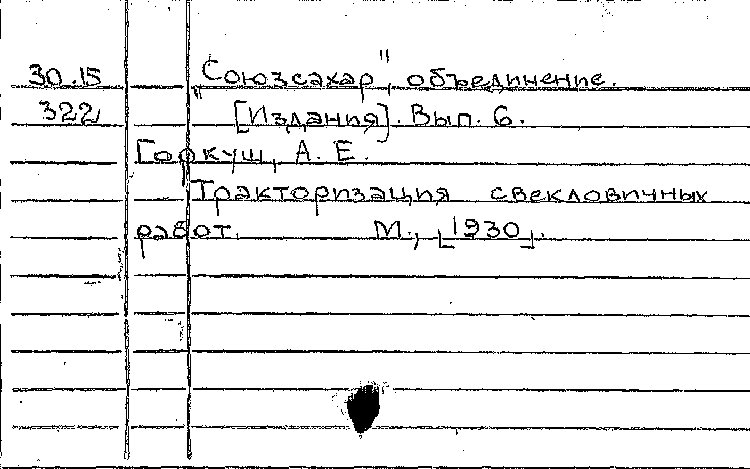 30.15 „Союзсахар", объединение.
322 [Издания]. Вып. 6.
Горкуш, А. Е.
Тракторизация свекловичных
работ. М., [1930].